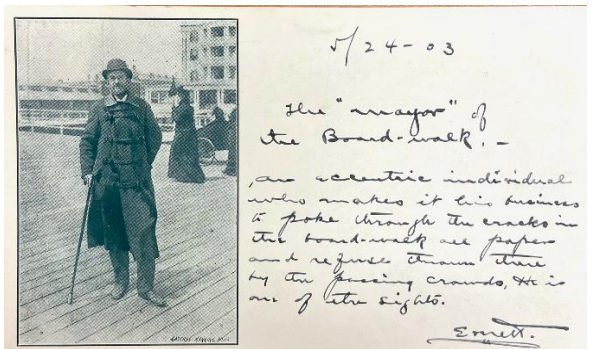 5/24-03
The "mayor" of
the Board-walk. -
, an eccentric individual
who makes it his business
to poke through the cracks in
the board-walk all paper
and refuse thrown there
by the passing crowds, He is
one of the sights.
Everett.